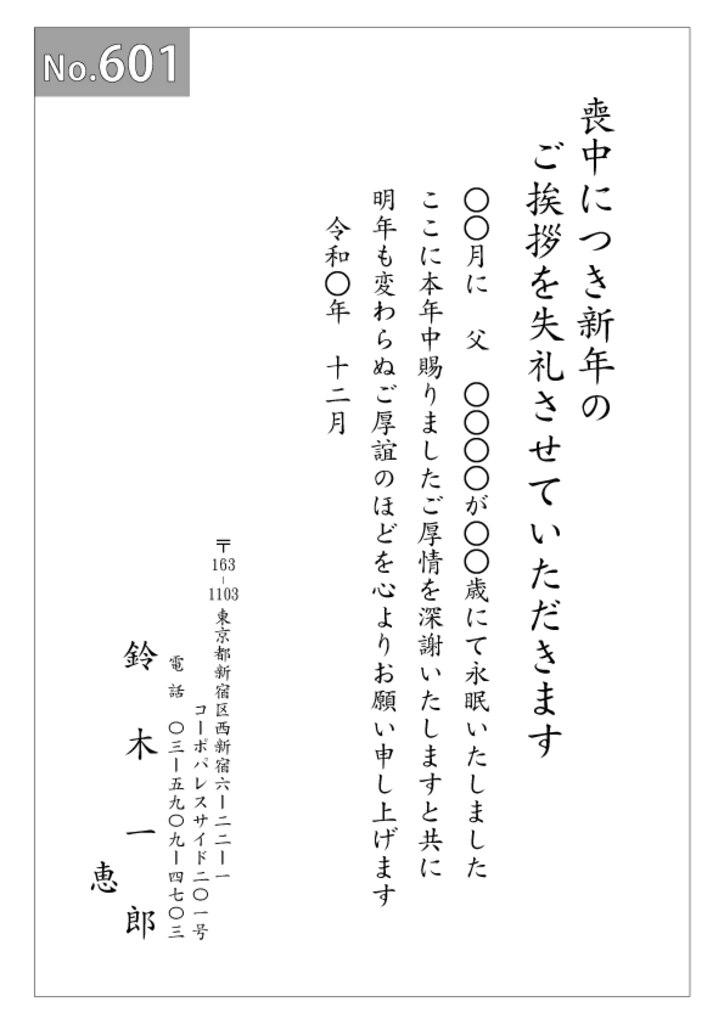 No.601
喪中につき新年の
ご挨拶を失礼させていただきます
〇〇月に　父　〇〇〇〇が〇〇歳にて永眠いたしました
ここに本年中賜りましたご厚情を深謝いたしますと共に
明年も変わらぬご厚誼のほどを心よりお願い申し上げます
令和〇年　十二月
〒163-1103 東京都新宿区西新宿六ー二二ー一
コーポパレスサイド二〇一号
電話　〇三ー五九〇九ー四七〇三
鈴木一郎
恵